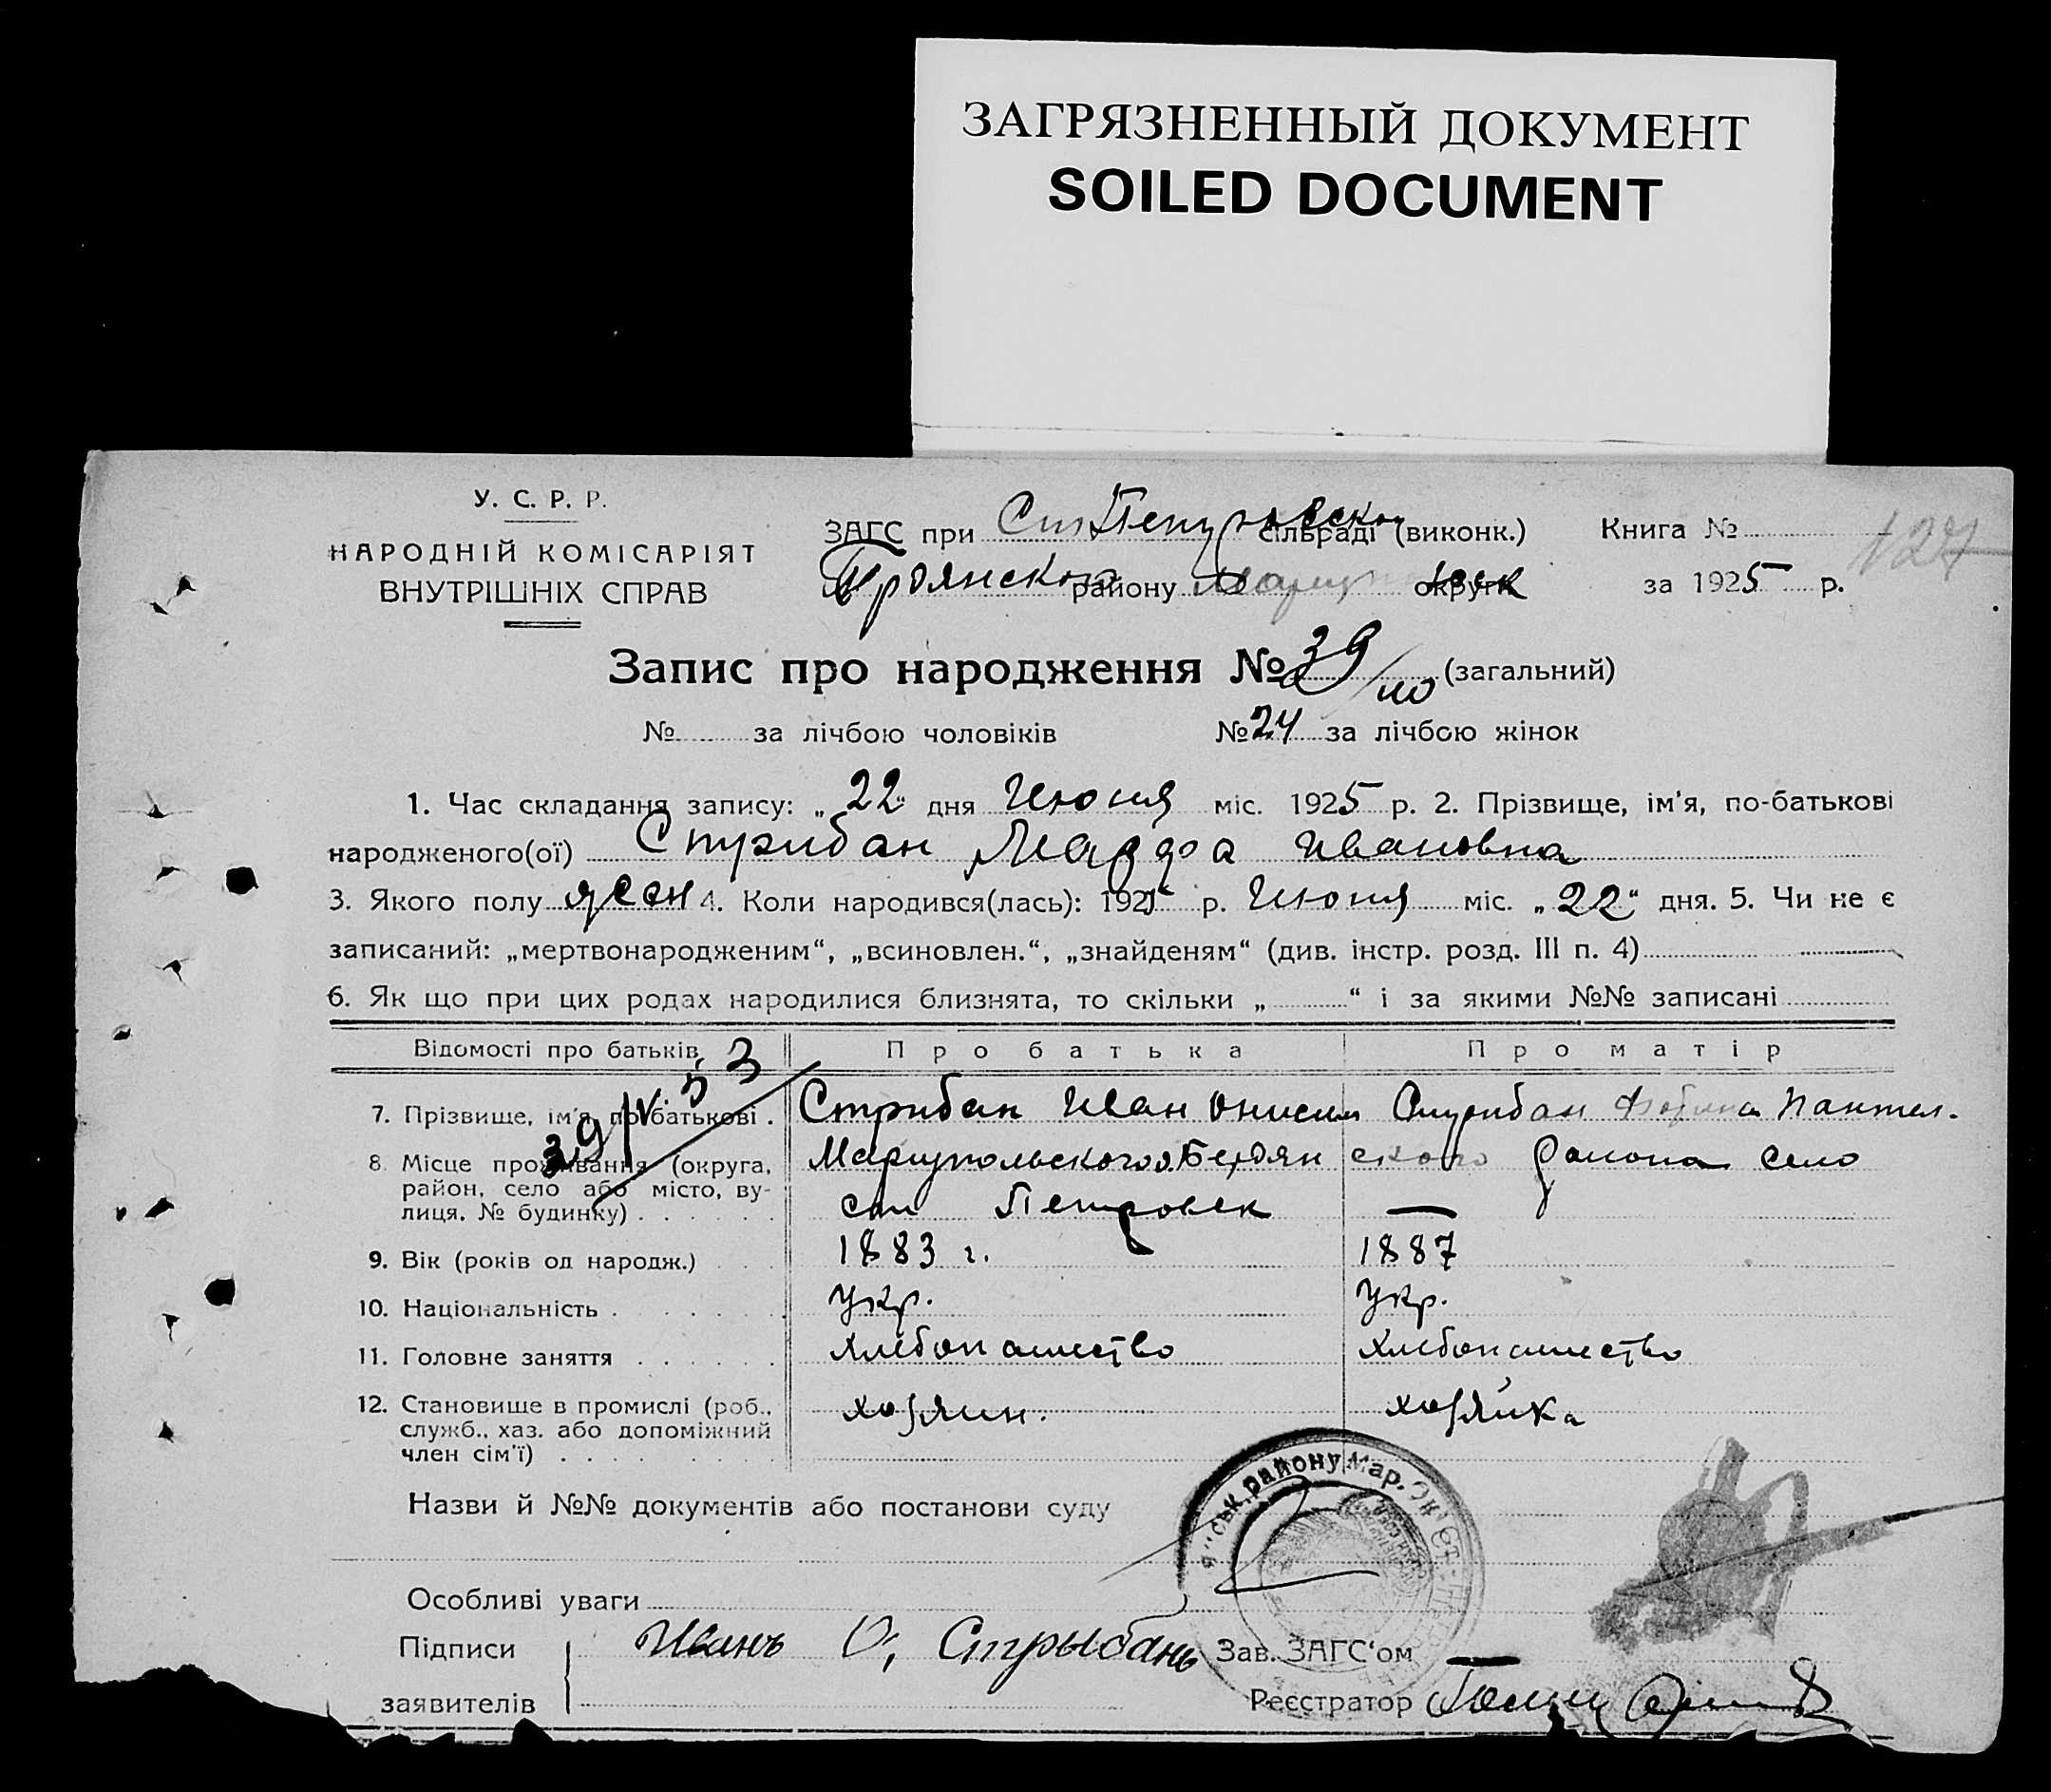 ЗАГРЯЗНЕННЫЙ ДОКУМЕНТ
SOILED DOCUMENT
У. С. Р. Р.
НАРОДНІЙ КОМІСАРІЯТ
ВНУТРІШНІХ СПРАВ
ЗАГС при Ст Петровском сільраді (виконк.)
району округи
Книга №
за 1925 р.
127
Запис про народження № 39/ (загальний)
№ за лічбою чоловіків № 24 за лічбою жінок
1. Час складання запису: „22“ дня Июня міс. 1925 р. 2. Прізвище, ім'я, по-батькові
народженого(ої) Стрибан Марфа Ивановна
3. Якого полу жен 4. Коли народився(лась): 1925 р. Июня міс. „22“ дня. 5. Чи не є
записаний: „мертвонародженим“, „всиновлен.“, „знайденям“ (див. інстр. розд. III п. 4)
6. Як що при цих родах народилися близнята, то скільки „ “ і за якими №№ записані
Відомості про батьків Про батька Про матір
7. Прізвище, ім'я, по-батькові . Стрибан Иван Онисим Стрибан Пантел.
8. Місце проживання (округа, Мариупольского о. Бердян ского района село
район, село або місто, ву-
лиця, № будинку) . . . . . . ст Петровск —
9. Вік (років од народж.) . . . 1883 г. 1887
10. Національність . . . . . . Укр. Укр.
11. Головне заняття . . . . . . хлебопашество хлебопашество
12. Становище в промислі (роб., хозяин. хозяйка
служб., хаз. або допоміжний
член сім'ї) . . . . . . . .
Назви й №№ документів або постанови суду
ськ. району Мар. Окр.
Особливі уваги
Підписи Иванъ О, Стрыбанъ Зав. ЗАГС'ом —
заявителів Реєстратор